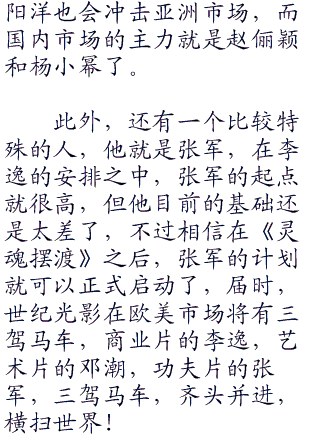 阳洋也会冲击亚洲市场，而
国内市场的主力就是赵俪颖
和杨小幂了。
此外，还有一个比较特
殊的人，他就是张军，在李
逸的安排之中，张军的起点
就很高，但他目前的基础还
是太差了，不过相信在《灵
魂摆渡》之后，张军的计划
就可以正式启动了，届时，
世纪光影在欧美市场将有三
驾马车，商业片的李逸，艺
术片的邓潮，功夫片的张
军，三驾马车，齐头并进，
横扫世界！